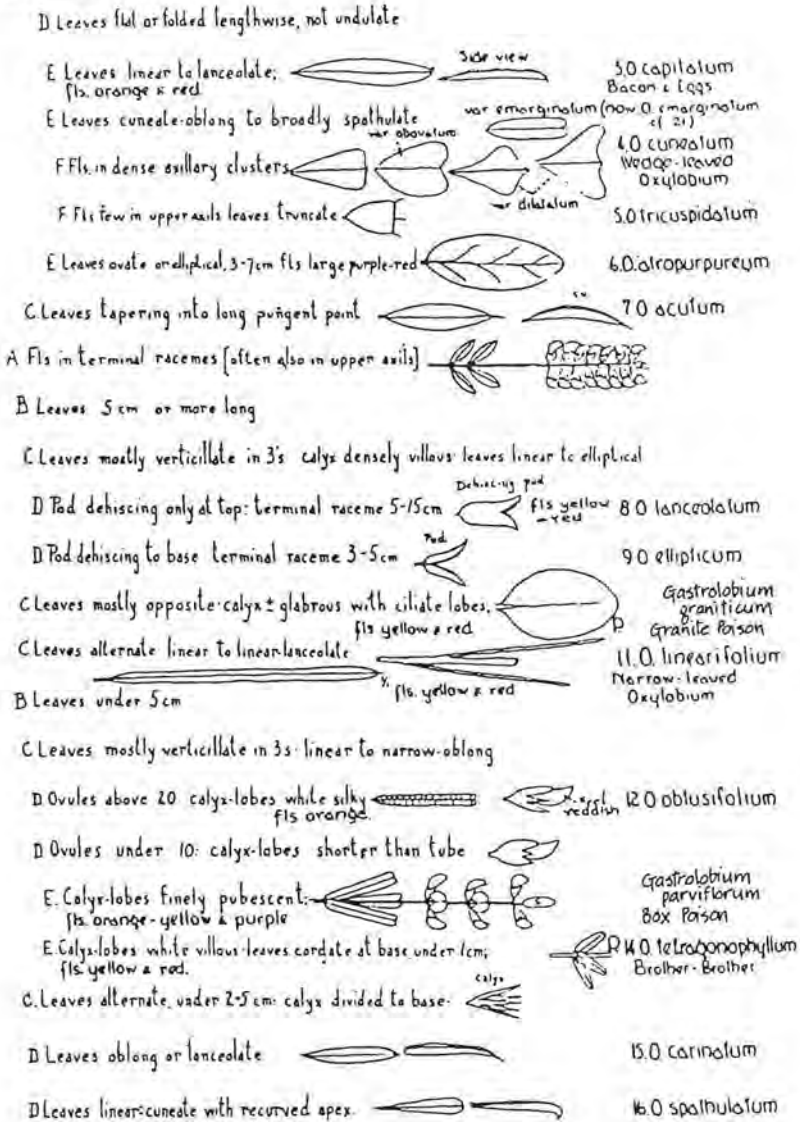 D Leaves flat or folded lengthwise, not undulate
E Leaves linear to lanceolate; Side view 3.O capitatum
fls. orange & red Bacon & Eggs
E Leaves cuneate-oblong to broadly spathulate var emarginatum (now O. emarginatum
var obovatum cf 21)
F Fls. in dense axillary clusters 4.O cuneatum
Wedge-leaved
Oxylobium
var dilatatum
F Fls few in upper axils leaves truncate 5.O tricuspidatum
E Leaves ovate or elliptical, 3-7cm fls large purple-red 6.O. atropurpureum
C Leaves tapering into long pungent point 7.O acutum
A Fls in terminal racemes [often also in upper axils]
B Leaves 5 cm or more long
C Leaves mostly verticillate in 3's calyx densely villous leaves linear to elliptical
Dehiscing pod
D Pod dehiscing only at top: terminal raceme 5-15cm fls yellow - red 8 O lanceolatum
Pod
D Pod dehiscing to base terminal raceme 3-5cm 9 O ellipticum
C Leaves mostly opposite calyx ± glabrous with ciliate lobes. Gastrolobium
fls yellow & red graniticum
P. Granite Poison
C Leaves alternate linear to linear-lanceolate 11.O. linearifolium
fls. yellow & red Narrow-leaved
Oxylobium
B Leaves under 5cm
C Leaves mostly verticillate in 3s linear to narrow-oblong
D Ovules above 20 calyx-lobes white silky reddish 12.O obtusifolium
fls orange.
D Ovules under 10: calyx-lobes shorter than tube
E. Calyx-lobes finely pubescent: Gastrolobium
fls orange-yellow & purple parviflorum
Box Poison
E. Calyx-lobes white villous leaves cordate at base under 1cm; P 14 O. tetragonophyllum
fls. yellow & red. Brother-Brother
C. Leaves alternate, under 2-5 cm: calyx divided to base. Calyx
D Leaves oblong or lanceolate 15.O. carinatum
D Leaves linear-cuneate with recurved apex. 16.O spathulatum